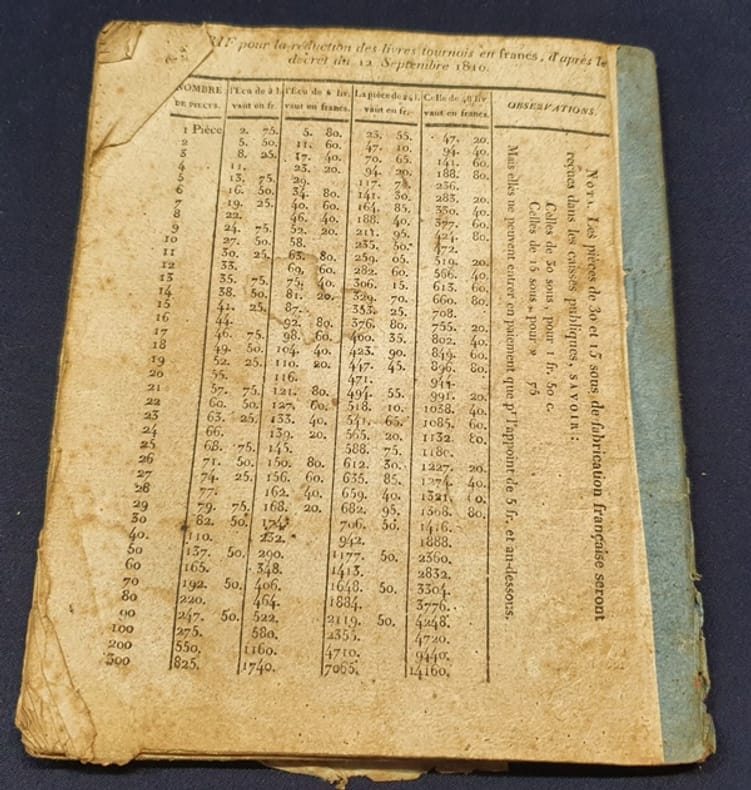 RIF pour la réduction des livres tournois en francs, d'après le
décret du 12 Septembre 1810.
NOMBRE DE PIECES. l'Ecu de 3 l. vaut en fr. l'Ecu de 6 liv. vaut en francs. La pièce de 24 l. vaut en fr. Celle de 48 liv. vaut en francs. OBSERVATIONS.
1 Pièce 2. 75. 5. 80. 23. 55. 47. 20.
2 5. 50. 11. 60. 47. 10. 94. 40.
3 8. 25. 17. 40. 70. 65. 141. 60.
4 11. 23. 20. 94. 20. 188. 80.
5 13. 75. 29. 117. 236.
6 16. 50. 34. 80. 141. 30. 283. 20.
7 19. 25. 40. 60. 164. 85. 330. 40.
8 22. 46. 40. 188. 40. 377. 60.
9 24. 75. 52. 20. 211. 95. 424. 80.
10 27. 50. 58. 235. 50. 472.
11 30. 25. 63. 80. 259. 05. 519. 20.
12 33. 69. 60. 282. 60. 566. 40.
13 35. 75. 75. 40. 306. 15. 613. 60.
14 38. 50. 81. 20. 329. 70. 660. 80.
15 41. 25. 87. 353. 25. 708.
16 44. 92. 80. 376. 80. 755. 20.
17 46. 75. 98. 60. 400. 35. 802. 40.
18 49. 50. 104. 40. 423. 90. 849. 60.
19 52. 25. 110. 20. 447. 45. 896. 80.
20 55. 116. 471. 944.
21 57. 75. 121. 80. 494. 55. 991. 20.
22 60. 50. 127. 60. 518. 10. 1038. 40.
23 63. 25. 133. 40. 541. 65. 1085. 60.
24 66. 139. 20. 565. 20. 1132. 80.
25 68. 75. 145. 588. 75. 1180.
26 71. 50. 150. 80. 612. 30. 1227. 20.
27 74. 25. 156. 60. 635. 85. 1274. 40.
28 77. 162. 40. 659. 40. 1321.
29 79. 75. 168. 20. 682. 95. 1368. 80.
30 82. 50. 174. 706. 50. 1416.
40. 110. 232. 942. 1888.
50 137. 50. 290. 1177. 50. 2360.
60 165. 348. 1413. 2832.
70 192. 50. 406. 1648. 50. 3304.
80 220. 464. 1884. 3776.
90 247. 50. 522. 2119. 50. 4248.
100 275. 580. 2355. 4720.
200 550. 1160. 4710. 9440.
300 825. 1740. 7065. 14160.
NOTA. Les pièces de 30 et 15 sous, de fabrication française seront
reçues dans les caisses publiques, SAVOIR :
Celles de 30 sous, pour 1 fr. 50 c.
Celles de 15 sous, pour » 75
Mais elles ne peuvent entrer en paiement que pr l'appoint de 5 fr. et au-dessous.